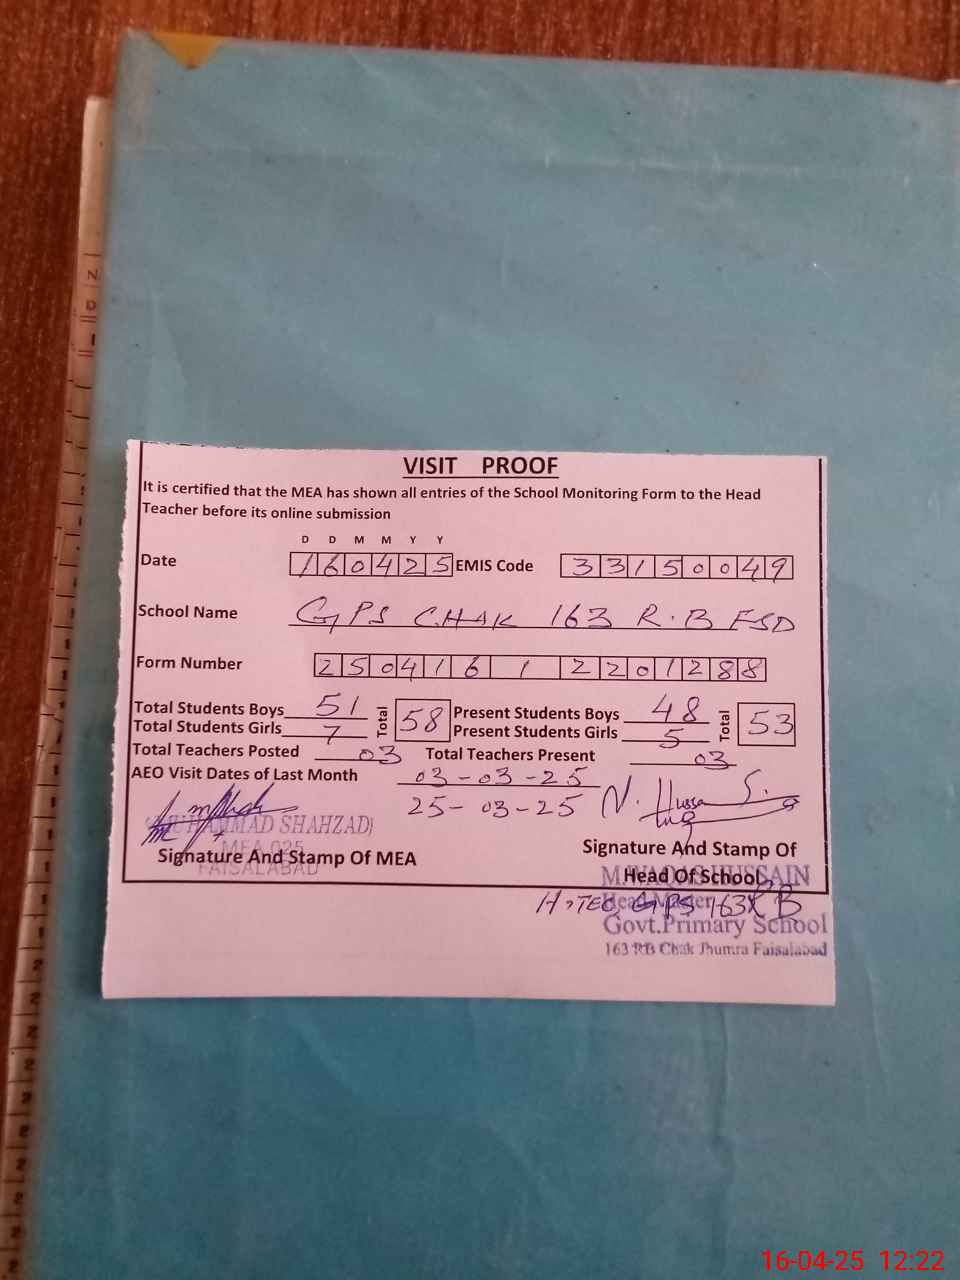 VISIT PROOF
It is certified that the MEA has shown all entries of the School Monitoring Form to the Head
Teacher before its online submission
D D M M Y Y
Date 160425 EMIS Code 33150049
School Name GPS CHAK 163 R.B FSD
Form Number 250416 1 2201288
Total Students Boys 51 Total 58 Present Students Boys 48 Total 53
Total Students Girls 7 Present Students Girls 5
Total Teachers Posted 03 Total Teachers Present 03
AEO Visit Dates of Last Month 03-03-25
25-03-25
MUHAMMAD SHAHZAD
MEA 025
FAISALABAD
Signature And Stamp Of MEA
Signature And Stamp Of
Head Of School
M.WAQAS HUSSAIN
Head Master
GPS 163 RB
Govt.Primary School
163 RB Chak Jhumra Faisalabad
16-04-25 12:22